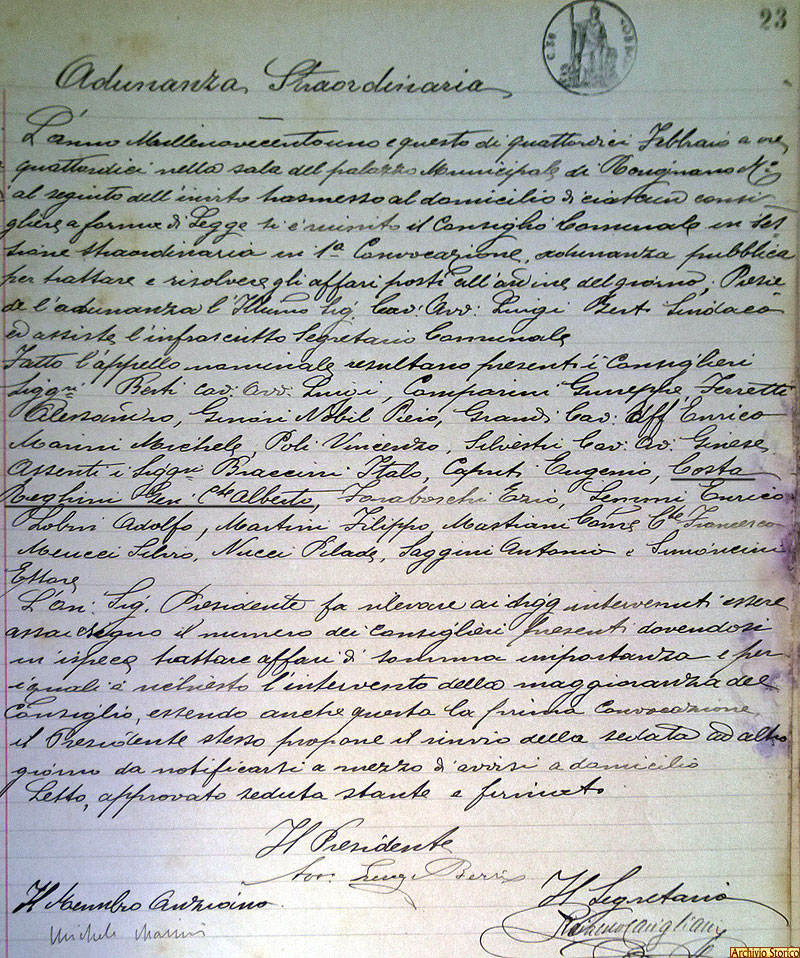 23
Adunanza Straordinaria
L'anno Millenovecentouno e questo dì quattordici Febbraio a ore
quattordici nella sala del palazzo Municipale di Rosignano Mo
al seguito dell'invito trasmesso al domicilio di ciascun consi-
gliere a forma di Legge si è riunito il Consiglio Comunale in ses
sione straordinaria in 1a Convocazione, adunanza pubblica
per trattare e risolvere gli affari posti all'ordine del giorno, Presie
de l'adunanza l'Illumo Sig. Cav. Avv. Luigi Berti Sindaco
ed assiste l'infrascritto Segretario Comunale
Fatto l'appello nominale resultano presenti i Consiglieri
Siggri Berti Cav. Avv. Luigi, Comparini Giuseppe, Ferretti
Alessandro, Ginori Nobil Piero, Grandi Cav. Uff. Enrico
Marini Michele, Poli Vincenzo, Silvestri Cav. Av.
Assenti i Siggri Braccini Italo, Caputi Eugenio, Costa
Reghini Gen. Cte Alberto, Faraboschi Ezio, Lemmi Enrico
Adolfo, Martini Filippo, Mastiani Cte Francesco
Meucci Silvio, Nucci Pilade, Saggini Antonio e Simoncini
Ettore
L'on. Sig. Presidente fa rilevare ai Sigg intervenuti essere
assai esiguo il numero dei Consiglieri presenti dovendosi
in ispece trattare affari di somma importanza e per
i quali è richiesto l'intervento della maggioranza del
Consiglio, essendo anche questa la prima Convocazione
il Presidente stesso propone il rinvio della seduta ad altro
giorno da notificarsi a mezzo d'avvisi a domicilio
Letto, approvato seduta stante e firmato
Il Presidente
Avv. Luigi Berti
Il Membro Anziano
Il Segretario
Michele Marini
Archivio Storico